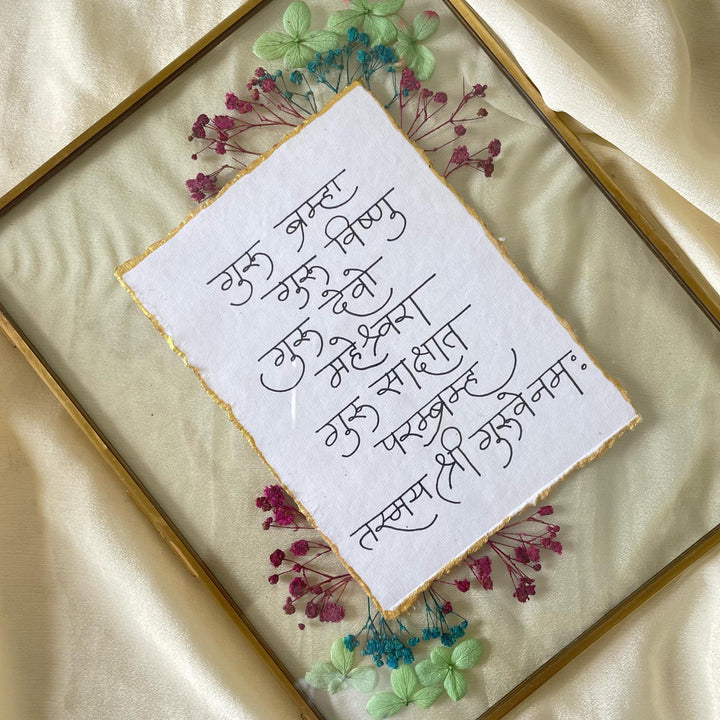 गुरू ब्रम्हा
गुरू विष्णु
गुरू देवो
महेश्वरा
गुरू साक्षात
परमब्रम्ह
तस्मय श्री गुरुवे नमः